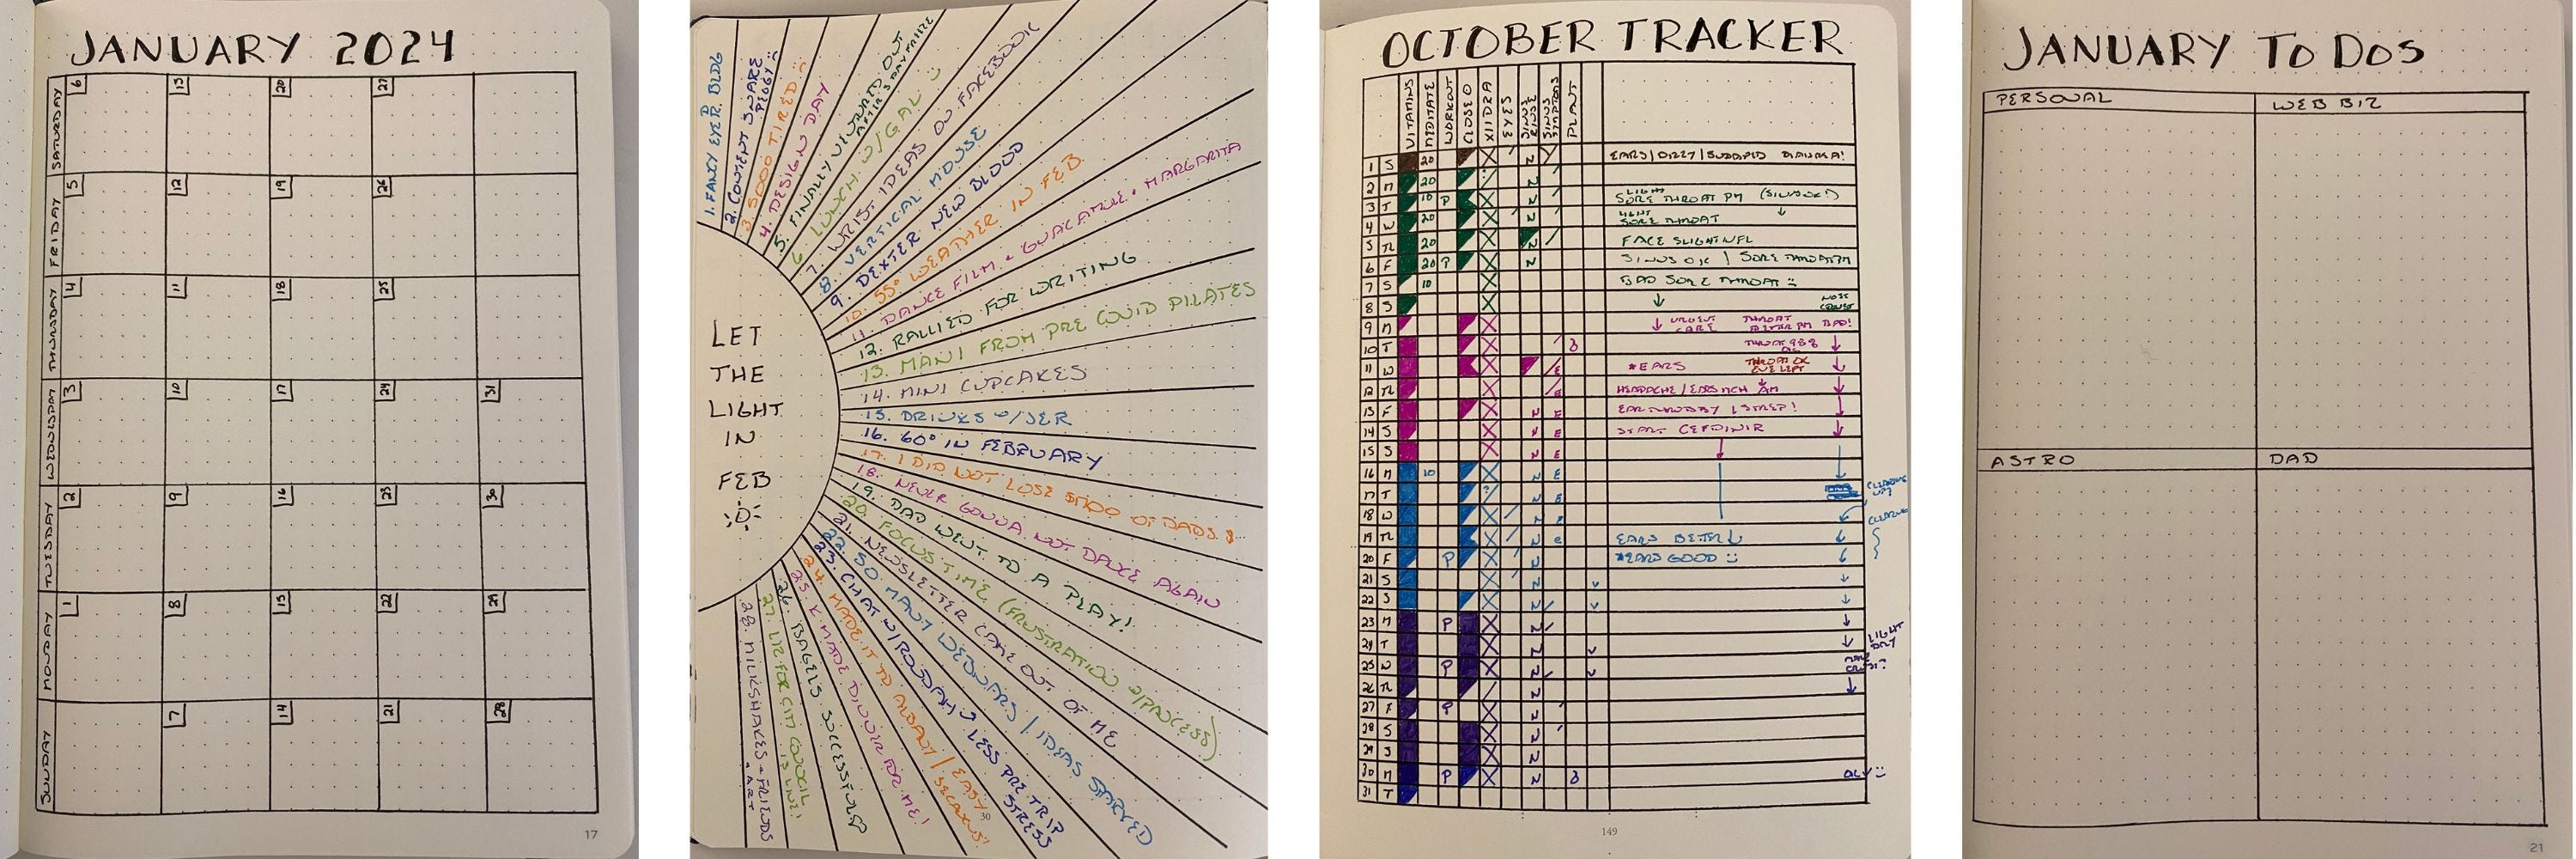 JANUARY 2024
SATURDAY 6 13 20 27
FRIDAY 5 12 19 26
THURSDAY 4 11 18 25
WEDNESDAY 3 10 17 24 31
TUESDAY 2 9 16 23 30
MONDAY 1 8 15 22 29
SUNDAY 7 14 21 28
17
LET
THE
LIGHT
IN
FEB
1. FANCY EYE DR. BLDG
2. CONTENT SNARE
PEGGY
3. SOOO TIRED
4. DESIGN DAY
5. FINALLY VENTURED OUT
AFTER 3 DAY FREEZE
6. LUNCH W/GAL
7. WRIST IDEAS ON FACEBOOK
8. VERTICAL MOUSE
9. DEXTER NEW BLOOD
10. 55° WEATHER IN FEB
11. DANCE FILM + GUACAMOLE + MARGARITA
12. RALLIED FOR WRITING
13. MANI FROM PRE COVID PILATES
14. MINI CUPCAKES
15. DRINKS W/JER
16. 60° IN FEBRUARY
17. I DID NOT LOSE $1100 OF DADS $...
18. NEVER GONNA NOT DANCE AGAIN
19. DAD WENT TO A PLAY!
20. FOCUS TIME (FRUSTRATION W/PROCESS)
21. NEWSLETTER CAME OUT OF ME
22. SO MANY WEBINARS / IDEAS STARTED
23. CHAT W/ROSDAN LESS PRE TRIP
STRESS
24. MADE IT TO ALBANY / EASY
25. K MADE DINNER FOR ME!
26. BAGELS SUCCESSFUL?
27. LIZ FOR CITY COUNCIL
IS LIVE!
28. MILKSHAKES + FRIENDS
+ ART
30
OCTOBER TRACKER
VITAMINS MEDITATE WORKOUT CLOSE O XIIDRA EYES SINUS RINSE SINUS SYMPTOMS PLANT
1 S 20 N EARS/DIZZY/
2 M 20 N
3 T 10 P N LIGHT SORE THROAT PM
4 W 20 N LIGHT SORE THROAT
5 TR 20 N FACE SLIGHT INFL
6 F 20 P N SINUS OK | SORE THROAT PM
7 S 10 BAD SORE THROAT
8 S
9 M URGENT CARE THROAT BETTER PM BAD!
10 T
11 W E *EARS THROAT OK
12 TR E HEADACHE / EARS AM
13 F N E STREP!
14 S N E START CEFDINIR
15 S N E
16 M 10 N E
17 T N E
18 W N E
19 TR N E EARS BETTER
20 F P N *EARS GOOD
21 S N
22 S N
23 M P N
24 T N LIGHT
25 W P N
26 TR N
27 F P N
28 S N
29 S N
30 M P N
31 T
149
JANUARY TO DOS
PERSONAL WEB BIZ
ASTRO DAD
21